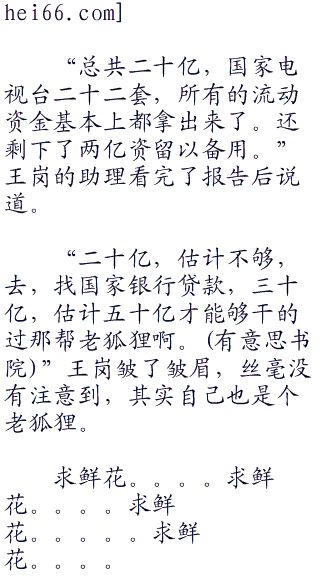 hei66.com]
“总共二十亿，国家电
视台二十二套，所有的流动
资金基本上都拿出来了。还
剩下了两亿资留以备用。”
王岗的助理看完了报告后说
道。
“二十亿，估计不够，
去，找国家银行贷款，三十
亿，估计五十亿才能够干的
过那帮老狐狸啊。(有意思书
院)” 王岗皱了皱眉，丝毫没
有注意到，其实自己也是个
老狐狸。
求鲜花。。。。求鲜
花。。。。求鲜
花。。。。。求鲜
花。。。。